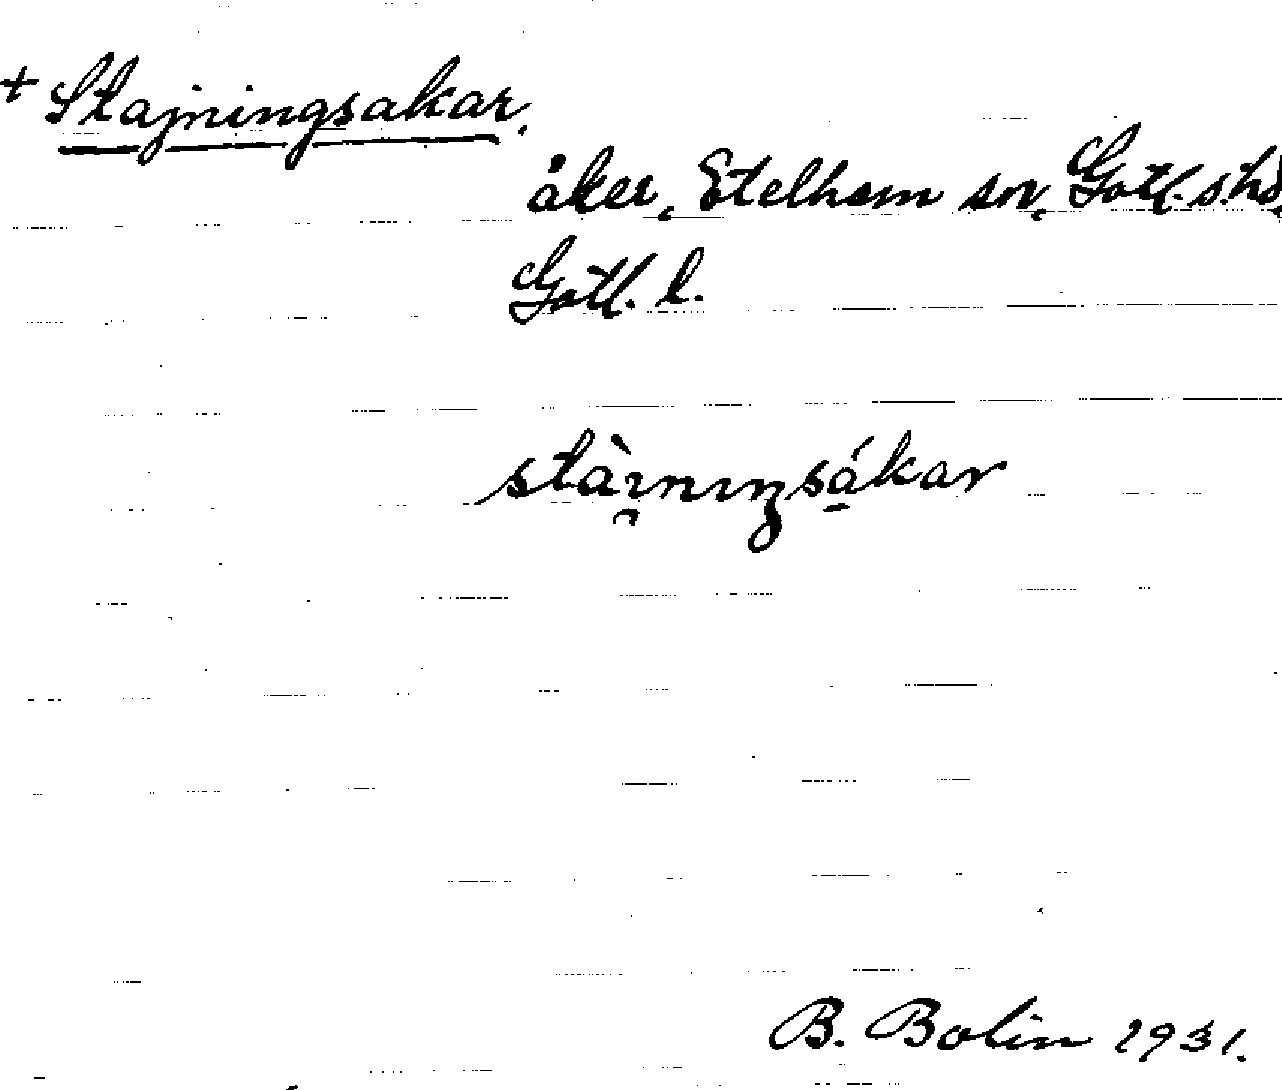 + Stajningsakar.
åker, Etelhem sn, Gotl. s. hd,
Gotl. l.
stàı̯nıŋsákar
B. Bolin 1931.